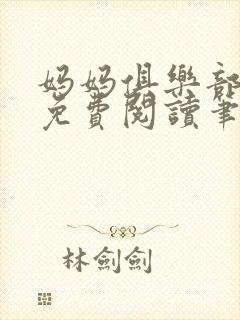 媽媽俱樂部
免費閱讀筆
林劍劍